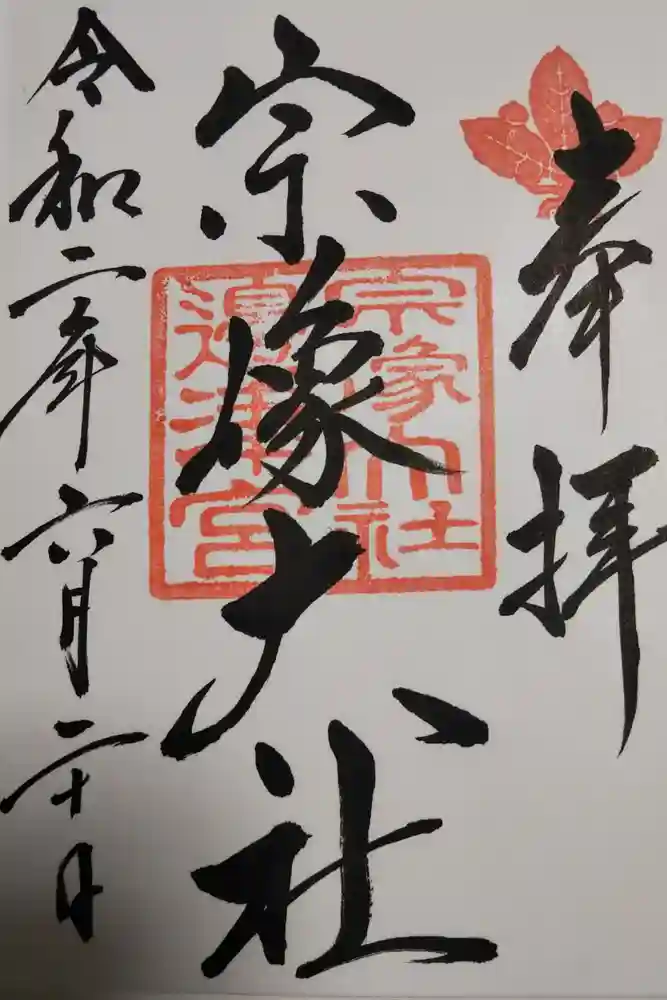 奉拝
宗像大社
宗像大社
邊津宮
令和二年六月二十日